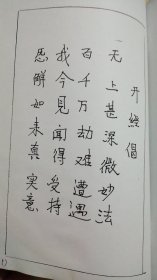 开經偈
无上甚深微妙法
百千万劫难遭遇
我今見聞得受持
愿解如来真实意